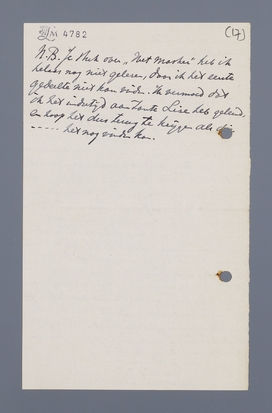 LM 4782 (17)
N.B. Je stuk over „Niet Mooker" heb ik
helaas nog niet gelezen, daar ik het eerste
gedeelte niet kon vinden. Ik vermoed dat
ik het indertijd aan Tante Lise heb geleend,
en hoop het dus terug te krijgen als zij
----- het nog vinden kan.